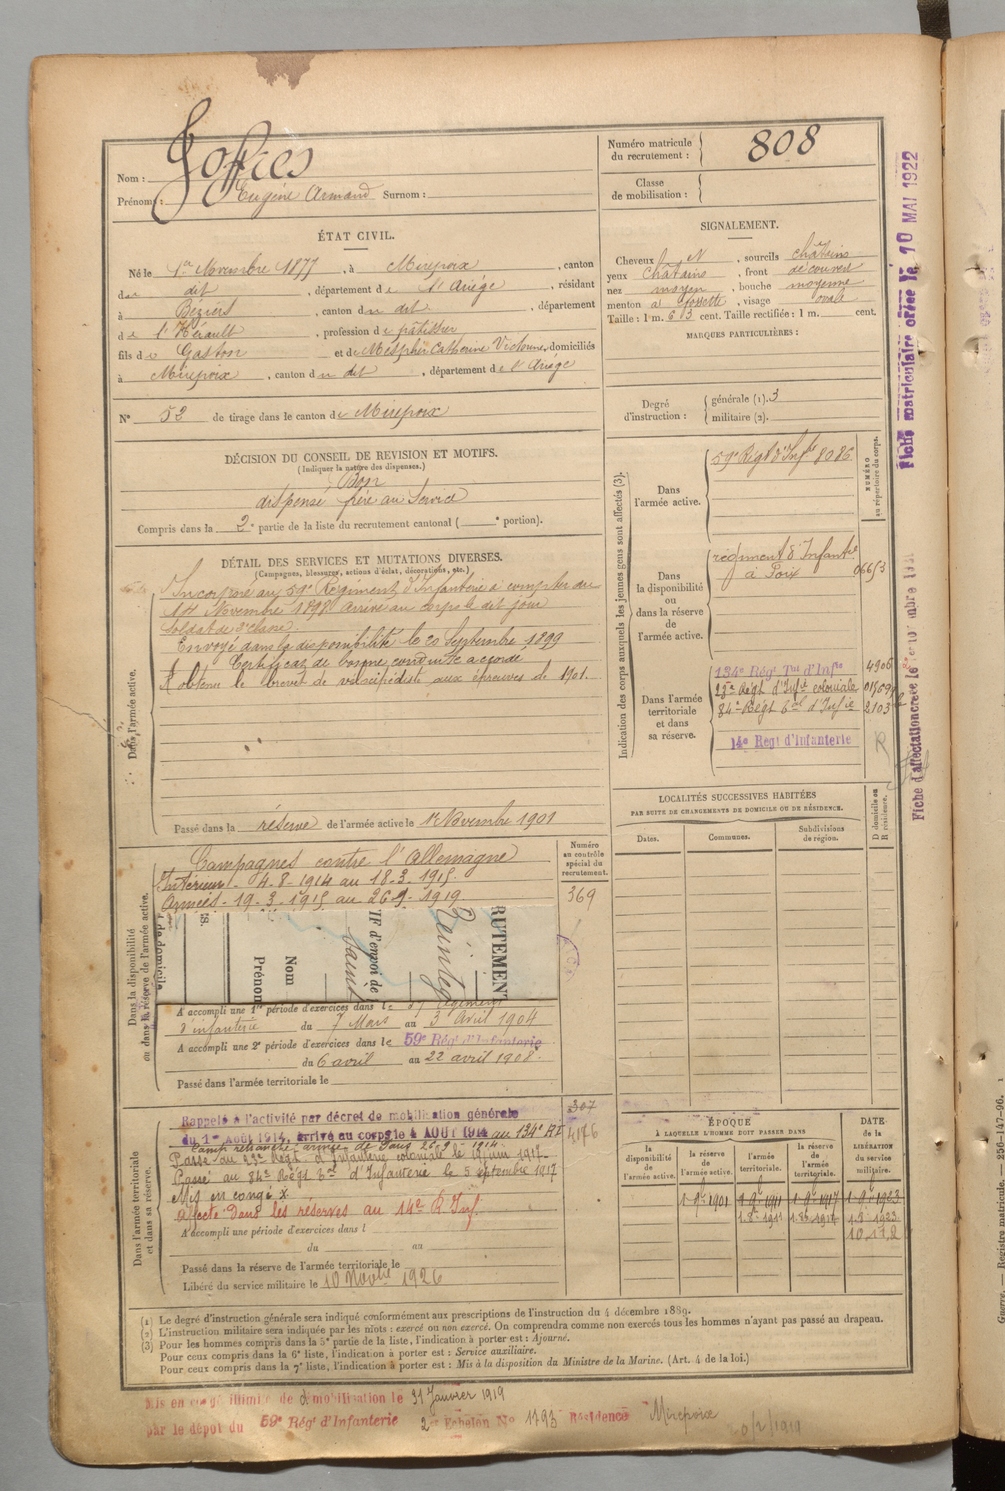 Nom : Joffres
Prénoms : Eugène Armand Surnom :
Numéro matricule du recrutement : 808
Classe de mobilisation :
ÉTAT CIVIL.
Né le 1er Novembre 1877, à Mirepoix, canton
du dit, département de l'Ariège, résidant
à Béziers, canton du dit, département
de l'Hérault, profession de pâtissier
fils de Gaston et de Mespliés Catherine Victorine, domiciliés
à Mirepoix, canton du dit, département de l'Ariège
N° 52 de tirage dans le canton de Mirepoix
SIGNALEMENT.
Cheveux N, sourcils châtains
yeux châtains, front découvert
nez moyen, bouche moyenne
menton à fossette, visage ovale
Taille : 1 m. 63 cent. Taille rectifiée : 1 m. cent.
MARQUES PARTICULIÈRES :
Degré d'instruction : générale (1). 3
militaire (2).
DÉCISION DU CONSEIL DE REVISION ET MOTIFS.
(Indiquer la nature des dispenses.)
Bon
dispensé frère au Service
Compris dans la 2e partie de la liste du recrutement cantonal ( e portion).
DÉTAIL DES SERVICES ET MUTATIONS DIVERSES.
(Campagnes, blessures, actions d'éclat, décorations, etc.)
Dans l'armée active.
Incorporé au 59e Régiment d'Infanterie à compter du
14 Novembre 1898 arrivé au corps le dit jour
Soldat de 2e classe.
Envoyé dans la disponibilité le 20 Septembre 1899
Certificat de bonne conduite accordé
A obtenu le brevet de vélocipédiste aux épreuves de 1901.
Passé dans la réserve de l'armée active le 1er Novembre 1901
Indication des corps auxquels les jeunes gens sont affectés (3).
NUMÉRO au répertoire du corps.
Dans l'armée active.
59e Regt d'Infie 8086
Dans la disponibilité ou dans la réserve de l'armée active.
régiment d'Infantie
à Foix 06653
Dans l'armée territoriale et dans sa réserve.
134e Régt Tal d'Infie 4906
23e Régt d'Infie coloniale
84e Régt Tal d'Infie 2103
14e Regt d'Infanterie R
LOCALITÉS SUCCESSIVES HABITÉES
PAR SUITE DE CHANGEMENTS DE DOMICILE OU DE RÉSIDENCE.
Dates. Communes. Subdivisions de région. D domicile ou R résidence.
Dans la disponibilité ou dans la réserve de l'armée active.
Numéro au contrôle spécial du recrutement.
369
Campagnes contre l'Allemagne
Intérieur - 4.8.1914 au 18.3.1915
Armées - 19.3.1915 au 26.9.1919
RUTEMENT
IF d'emploi de
Nom
Prénom
de domicile
A accompli une 1re période d'exercices dans le 59 régiment
d'infanterie du 7 Mars au 3 Avril 1904
A accompli une 2e période d'exercices dans le 59e Régt d'Infanterie
du 6 avril au 22 avril 1908.
Passé dans l'armée territoriale le
Dans l'armée territoriale et dans sa réserve.
307
4176
Rappelé à l'activité par décret de mobilisation générale
du 1er Août 1914, arrivé au corps le 4 AOUT 1914 au 134e RI
Camp retranché armée de Paris 26.9.1914
Passé au 23e Régt d'Infanterie coloniale le 19 juin 1917
Passé au 84e Régt Tal d'Infanterie le 5 septembre 1917
Mis en congé X
affecté dans les réserves au 14e R Inf.
A accompli une période d'exercices dans l
du au
Passé dans la réserve de l'armée territoriale le
Libéré du service militaire le 10 Novbre 1926
ÉPOQUE
À LAQUELLE L'HOMME DOIT PASSER DANS
la disponibilité de l'armée active.
la réserve de l'armée active.
l'armée territoriale.
la réserve de l'armée territoriale.
DATE de la LIBÉRATION du service militaire.
1 9bre 1901 1 9bre 1911 1 9bre 1917 1 9bre 1923
1.8bre 1911 1.8bre 1917 1.8 1923
(1) Le degré d'instruction générale sera indiqué conformément aux prescriptions de l'instruction du 4 décembre 1889.
(2) L'instruction militaire sera indiquée par les mots : exercé ou non exercé. On comprendra comme non exercés tous les hommes n'ayant pas passé au drapeau.
(3) Pour les hommes compris dans la 5e partie de la liste, l'indication à porter est : Ajourné.
Pour ceux compris dans la 6e liste, l'indication à porter est : Service auxiliaire.
Pour ceux compris dans la 7e liste, l'indication à porter est : Mis à la disposition du Ministre de la Marine. (Art. 4 de la loi.)
Mis en congé illimité de démobilisation le 31 Janvier 1919
par le dépot du 59e Régt d'Infanterie 2e Echelon N° 1793 Résidence Mirepoix
Fiche matriculaire créée le 10 MAI 1922
Fiche d'affectation créée le
Guerre. — Registre matricule. — 256-147-96.